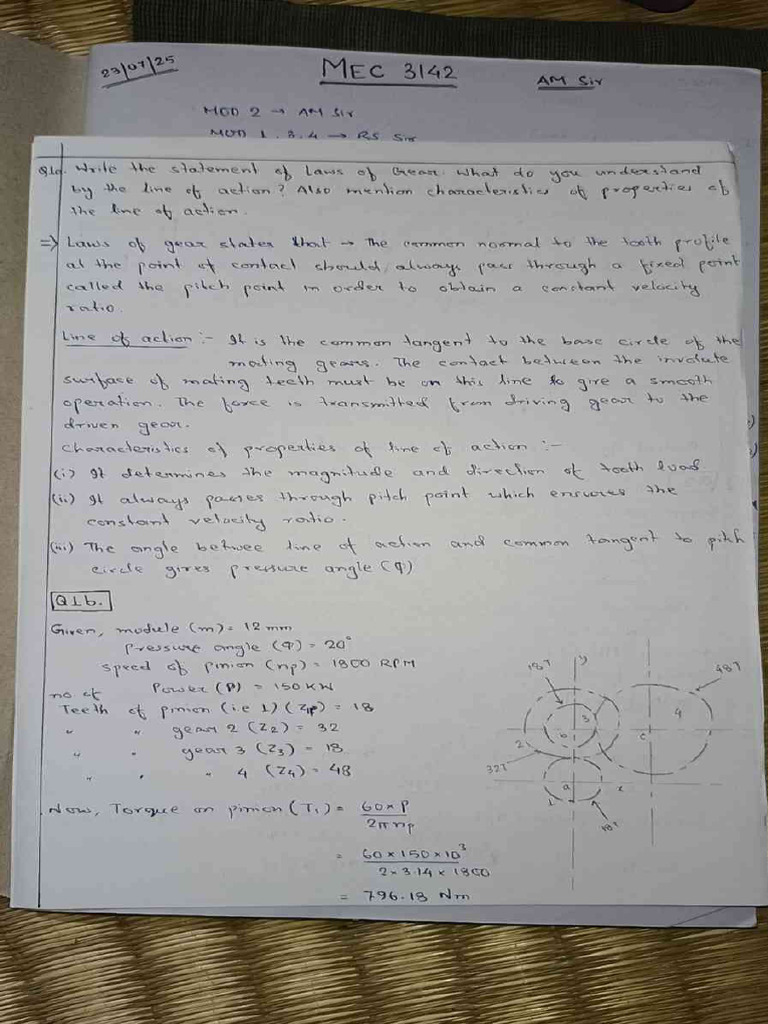 23/07/25
MEC 3142
AM Sir
MOD 2 → AM Sir
MOD 1, 3, 4 → RS Sir
Q1a. Write the statement of Laws of Gear. What do you understand
by the line of action? Also mention characteristics of properties of
the line of action.
=> Laws of gear states that → The common normal to the tooth profile
at the point of contact should always pass through a fixed point
called the pitch point in order to obtain a constant velocity
ratio.
Line of action :- It is the common tangent to the base circle of the
mating gears. The contact between the involute
surface of mating teeth must be on this line to give a smooth
operation. The force is transmitted from driving gear to the
driven gear.
Characteristics of properties of line of action :-
(i) It determines the magnitude and direction of tooth load
(ii) It always passes through pitch point which ensures the
constant velocity ratio.
(iii) The angle betwee line of action and common tangent to pitch
circle gives pressure angle (φ)
Q1b.
Given, module (m) = 12 mm
Pressure angle (φ) = 20°
Speed of pinion (np) = 1800 RPM
Power (P) = 150 KW
no of
Teeth of pinion (i.e 1) (Z1p) = 18
" " gear 2 (Z2) = 32
" " gear 3 (Z3) = 18
" " " 4 (Z4) = 48
18T
y
48T
3
4
b
c
2
32T
a
x
1
18T
Now, Torque on pinion (T1) = 60 × P
2π np
= 60 × 150 × 10³
2 × 3.14 × 1800
= 796.18 Nm